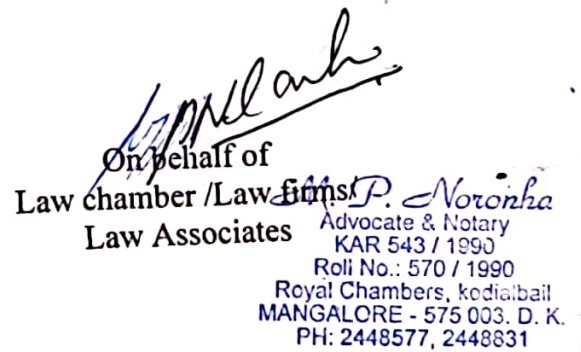 On behalf of
Law chamber /Law firms/
Law Associates
M. P. Noronha
Advocate & Notary
KAR 543 / 1990
Roll No.: 570 / 1990
Royal Chambers, kodialbail
MANGALORE - 575 003. D. K.
PH: 2448577, 2448831